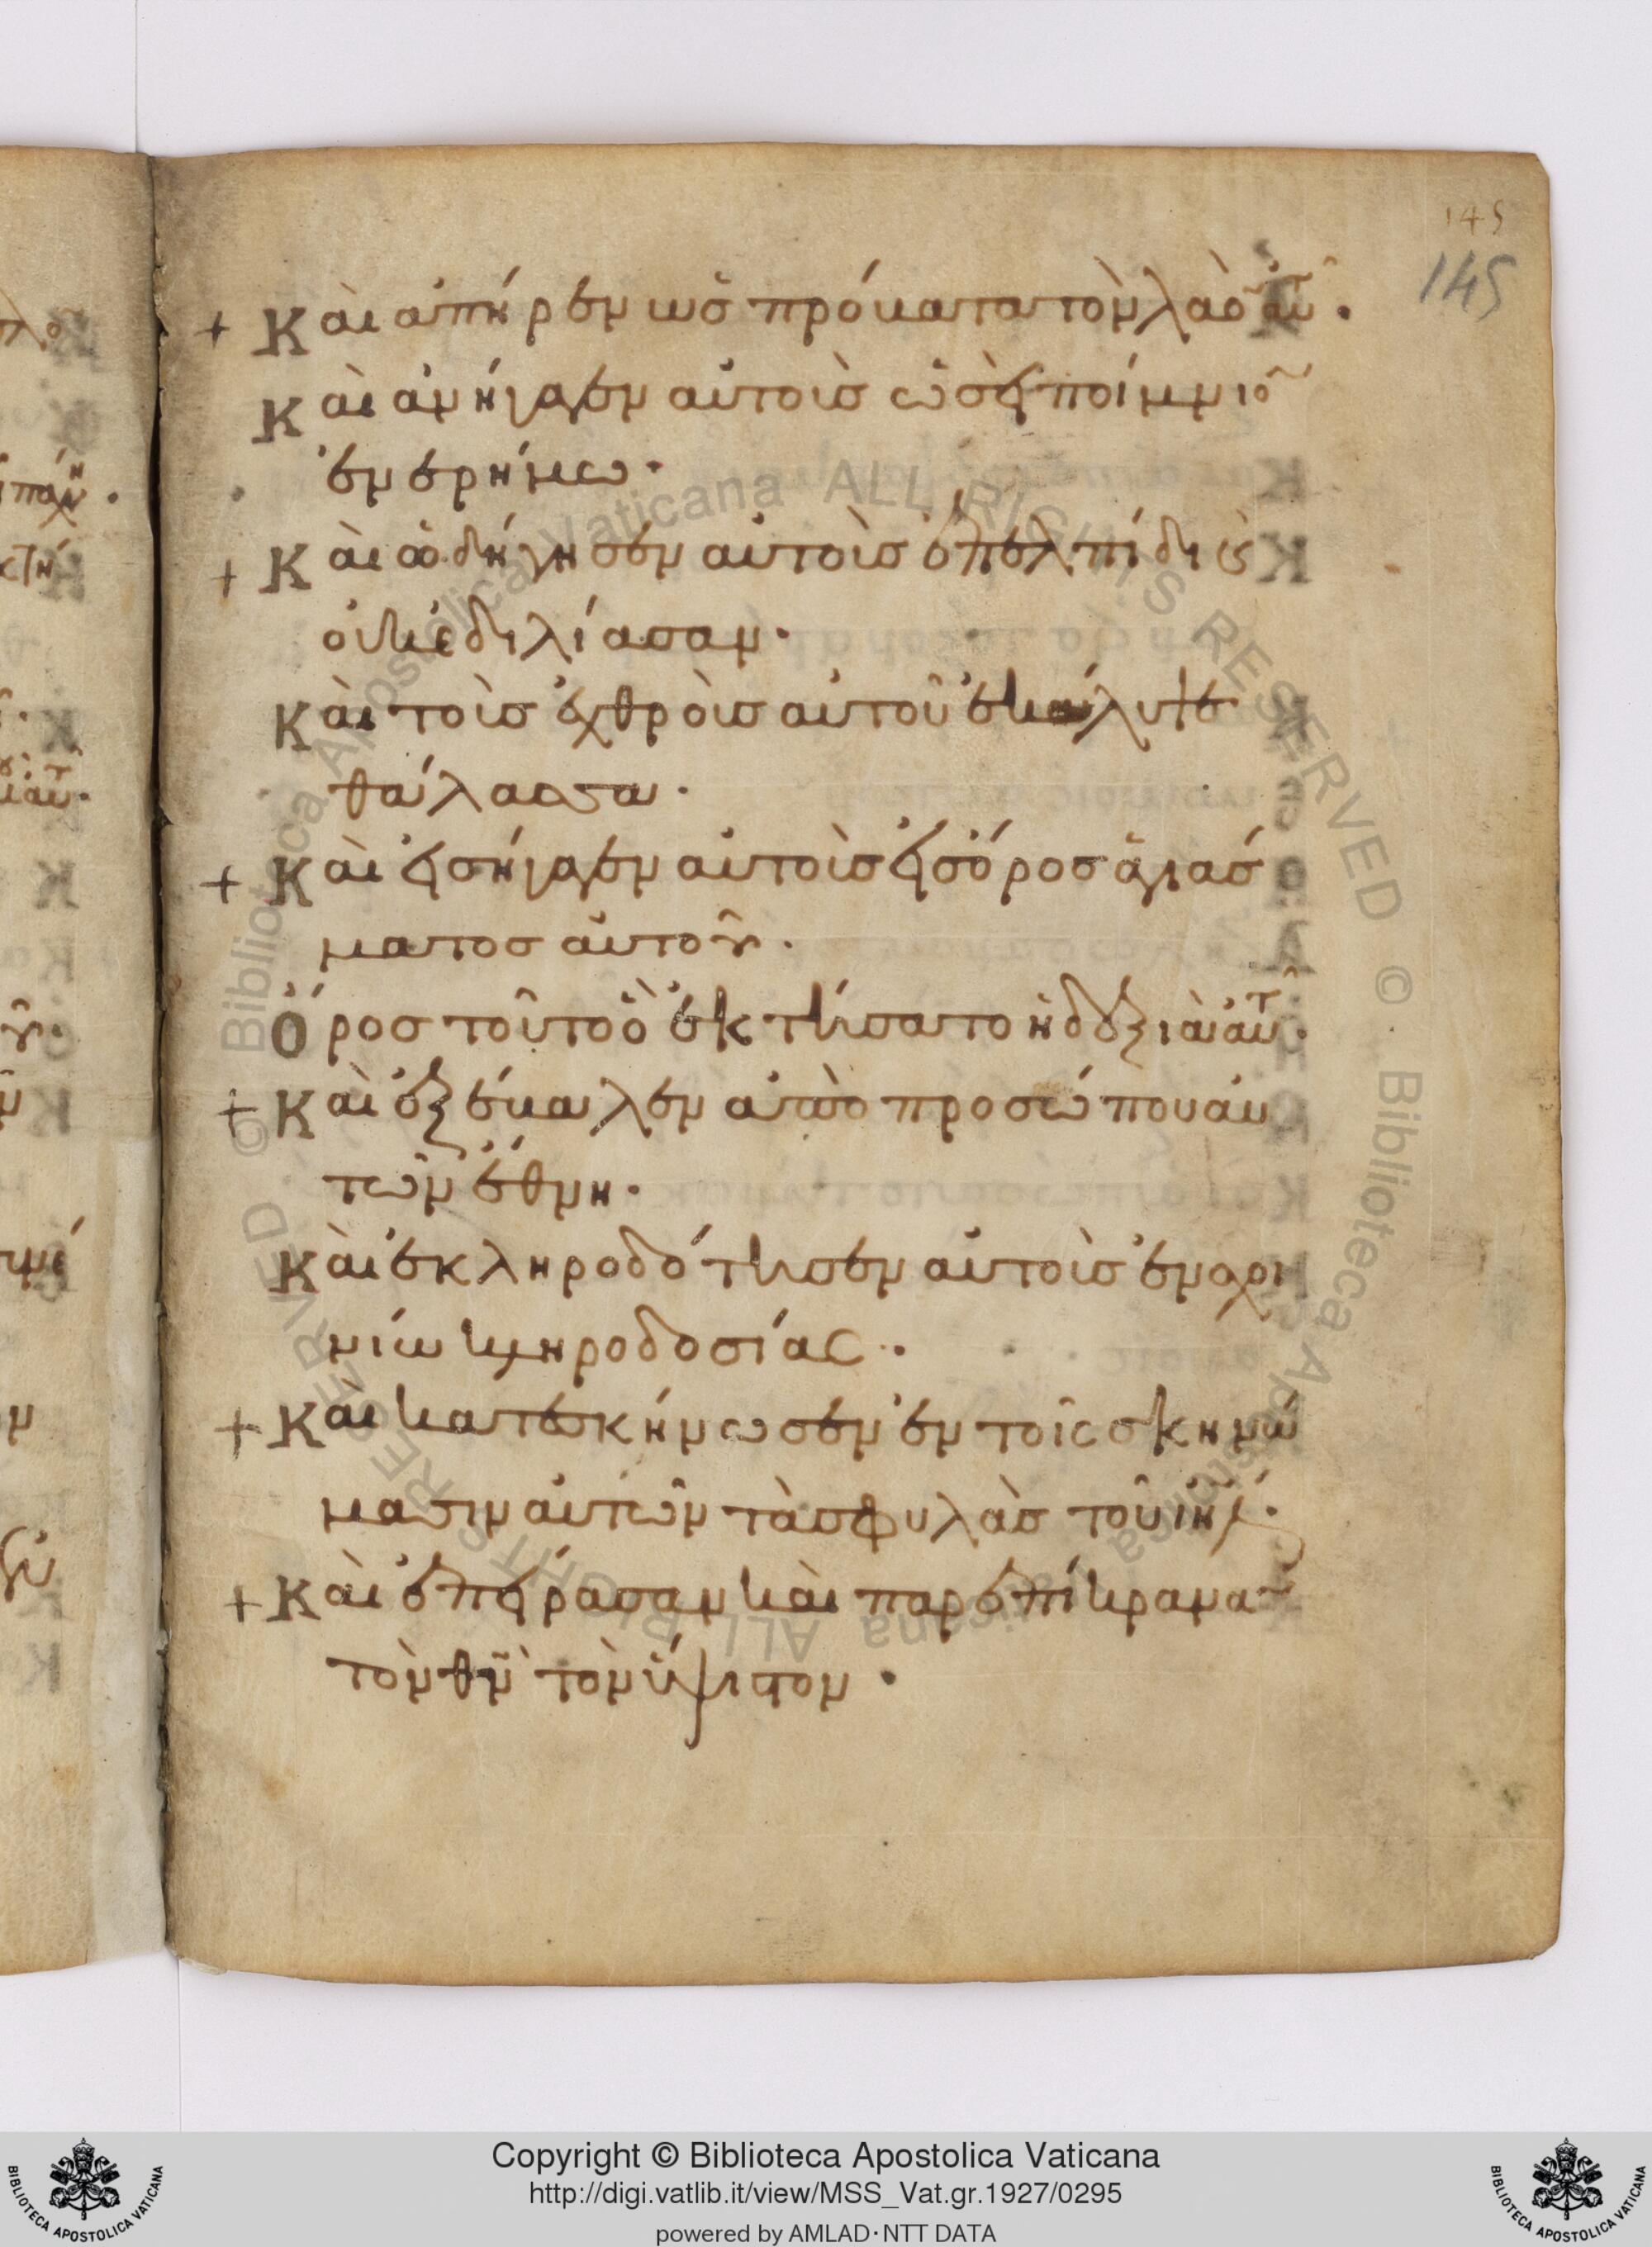 145
145
+ Καὶ ἀπῆρεν ὡς πρόβατα τὸν λαὸν αὐτοῦ.
Καὶ ἀνήγαγεν αὐτοὺς ὡσεὶ ποίμνιον
ἐν ἐρήμω.
+ Καὶ ὁδήγησεν αὐτοὺς ἐπ' ἐλπίδι καὶ
οὐκ ἐδιλίασαν.
Καὶ τοὺς ἐχθροὺς αὐτοῦ ἐκάλυψε
θάλασσα.
+ Καὶ εἰσήγαγεν αὐτοὺς εἰς ὄρος ἁγιάσ
ματος αὐτοῦ.
Ὄρος τοῦτο ὃ ἐκτήσατο ἡ δεξιὰ αὐτοῦ.
+ Καὶ ἐξέβαλεν ἀπὸ προσώπου αὐ
τῶν ἔθνη.
Καὶ ἐκληροδότησεν αὐτοὺς ἐν σχοι
νίω κληροδοσίας.
+ Καὶ κατεσκήνωσεν ἐν τοῖς σκηνώ
μασιν αὐτῶν τὰς φυλὰς τοῦ ιηλ.
+ Καὶ ἐπείρασαν καὶ παρεπίκραναν
τὸν θν τὸν ὕψιστον.
Copyright © Biblioteca Apostolica Vaticana
http://digi.vatlib.it/view/MSS_Vat.gr.1927/0295
powered by AMLAD·NTT DATA
BIBLIOTECA APOSTOLICA VATICANA
BIBLIOTECA APOSTOLICA VATICANA